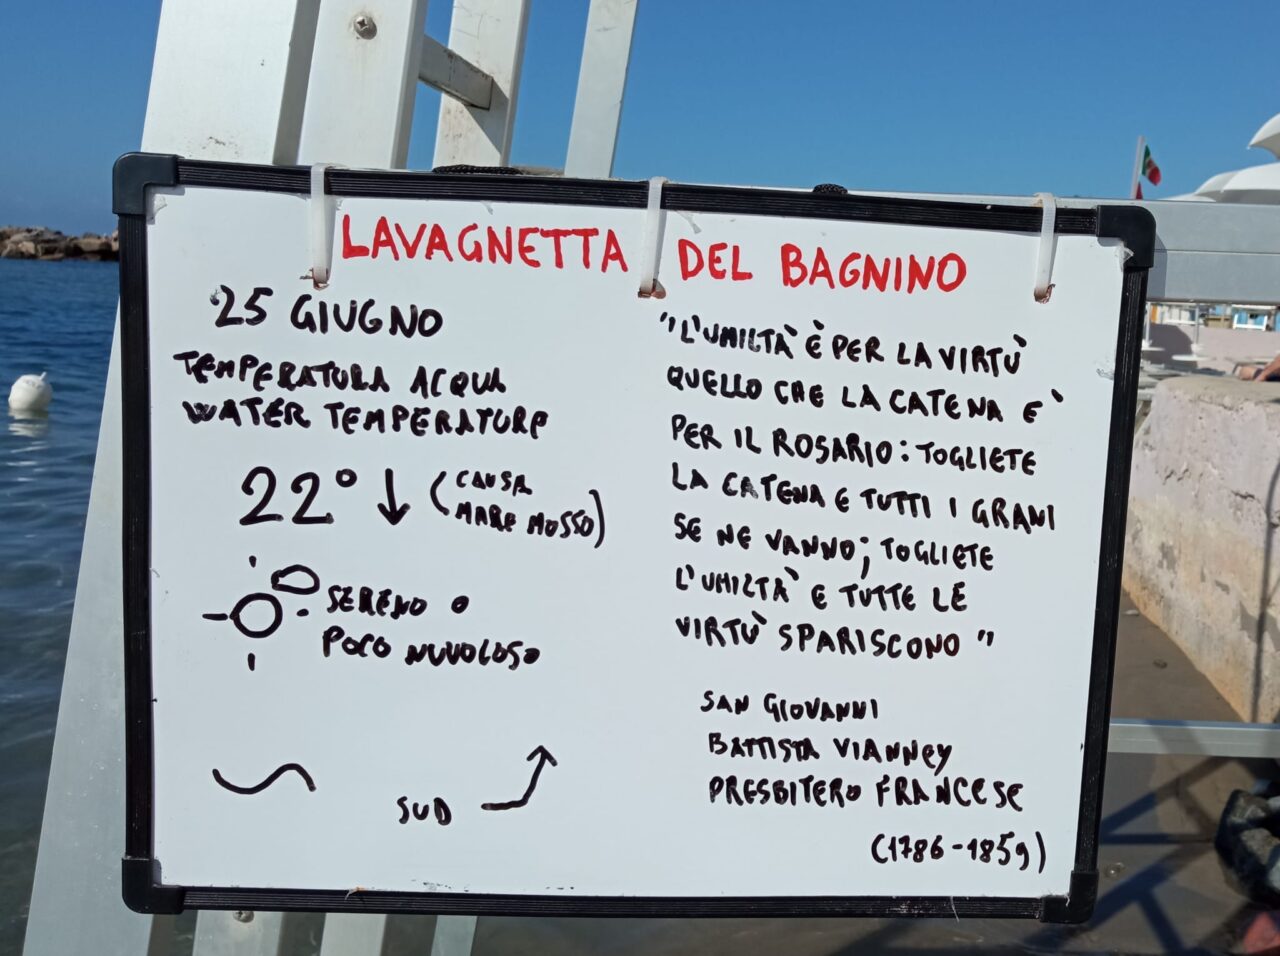 LAVAGNETTA DEL BAGNINO
25 GIUGNO
TEMPERATURA ACQUA
WATER TEMPERATURE
22° ↓ (CAUSA
MARE MOSSO)
SERENO O
POCO NUVOLOSO
SUD
"L'UMILTÀ È PER LA VIRTÙ
QUELLO CHE LA CATENA E'
PER IL ROSARIO: TOGLIETE
LA CATENA E TUTTI I GRANI
SE NE VANNO; TOGLIETE
L'UMILTÀ E TUTTE LE
VIRTÙ SPARISCONO"
SAN GIOVANNI
BATTISTA VIANNEY
PRESBITERO FRANCESE
(1786-1859)